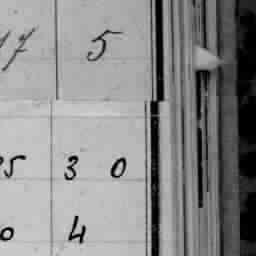 17 5
25 3 0
0 4